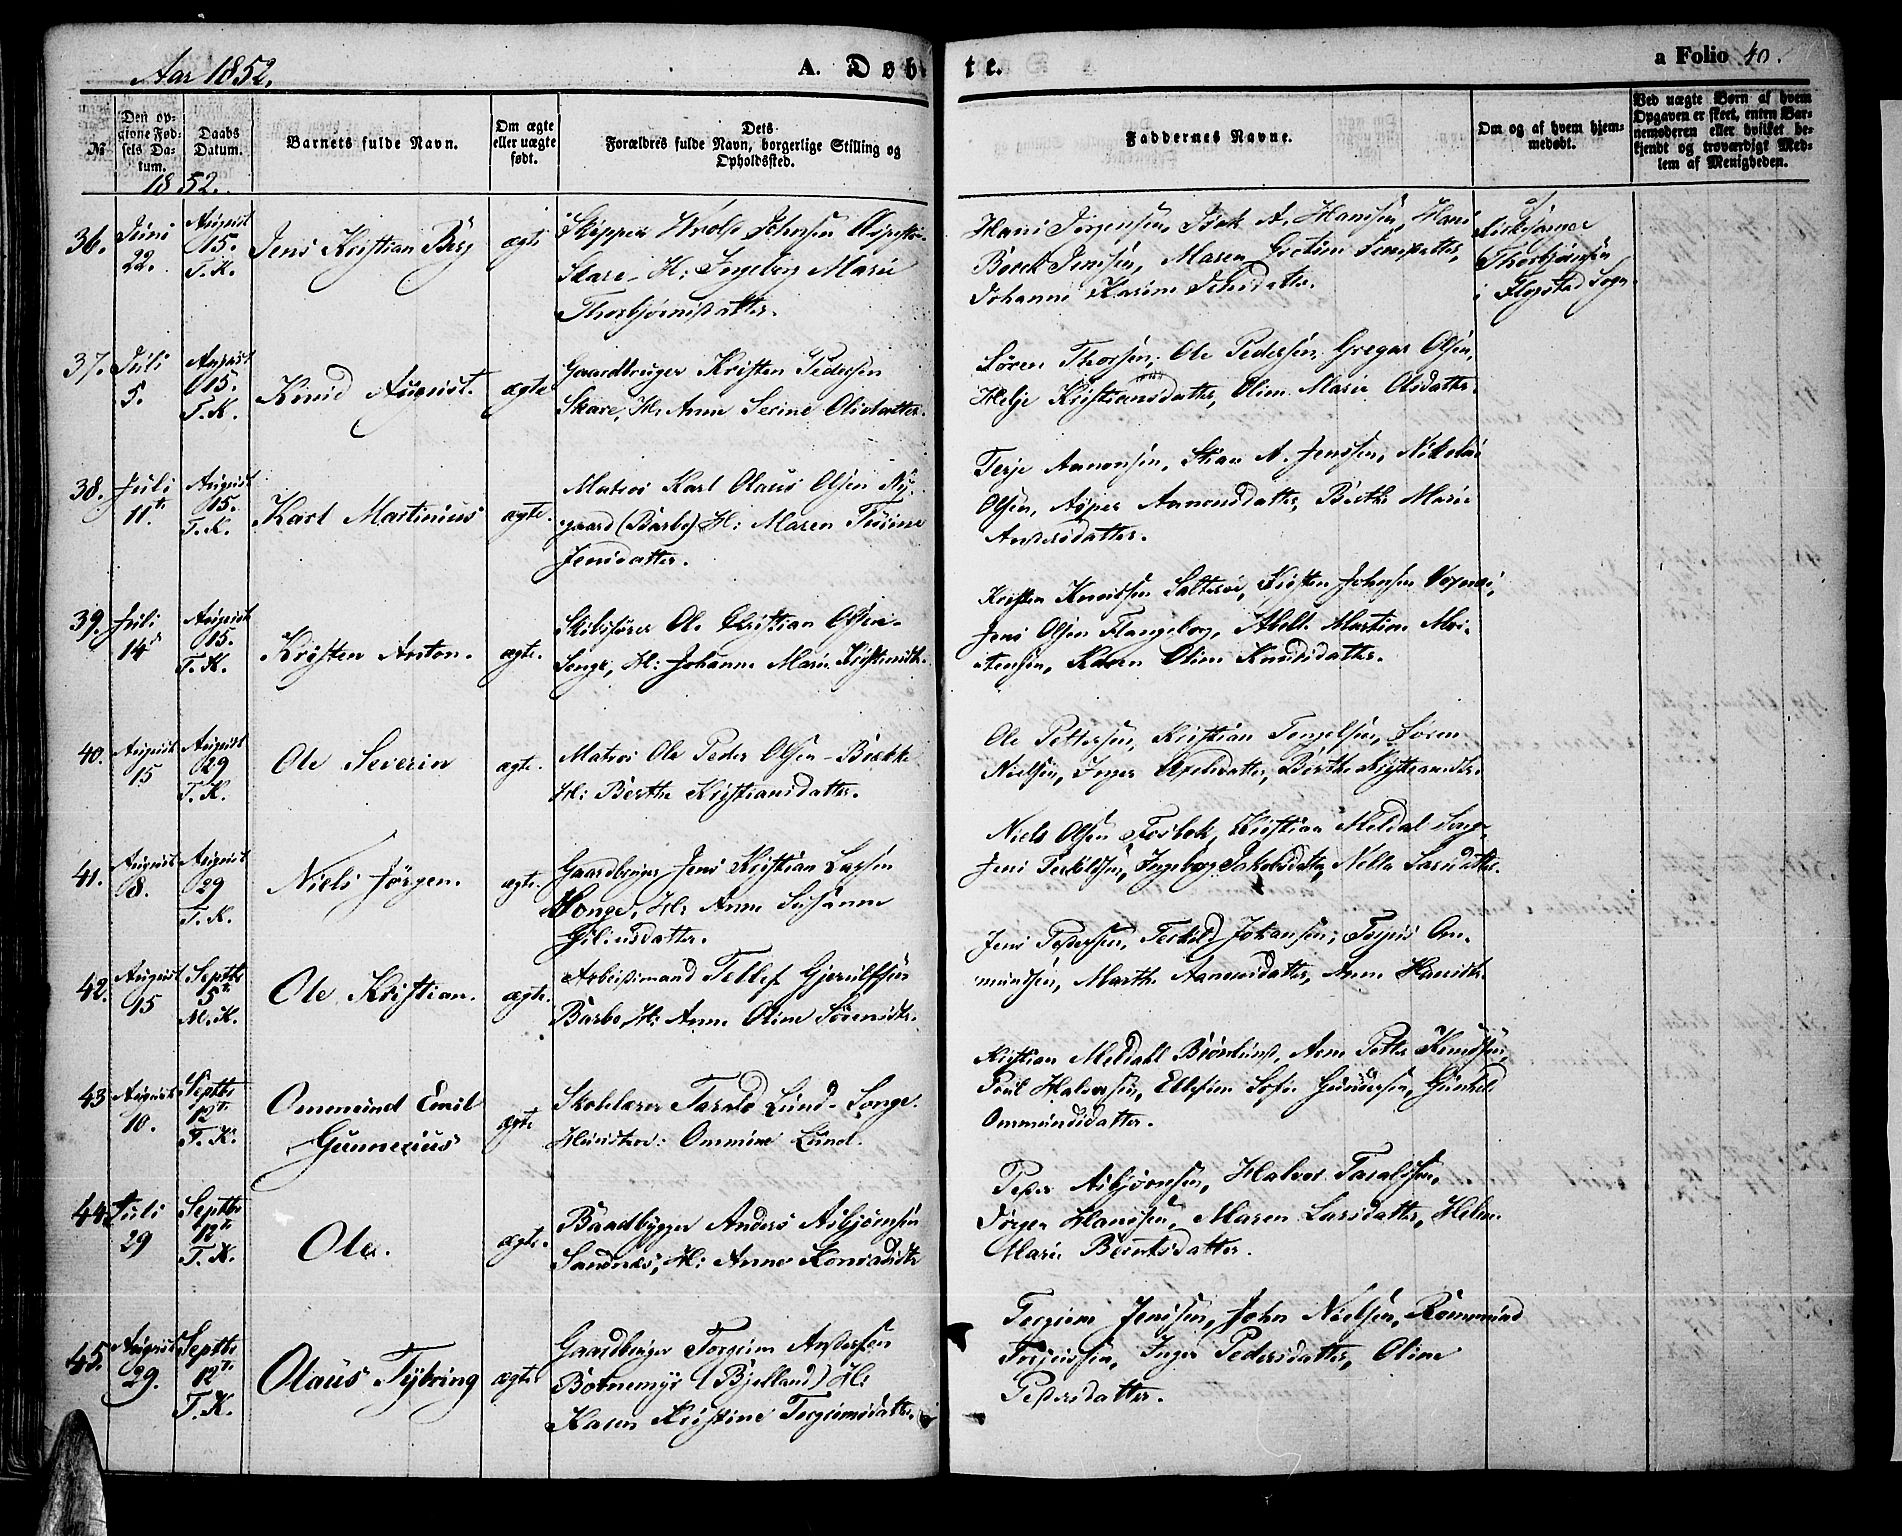 Aar 1852.
A. Døbte.
a Folio 40.
№
Den opgivne Fødsels Datum.
Daabs Datum.
Barnets fulde Navn.
Om ægte eller uægte født.
Dets Forældres fulde Navn, borgerlige Stilling og Opholdssted.
Faddernes Navne.
Om og af hvem hjemmedøbt.
Ved uægte Børn af hvem Opgaven er skeet, enten Barnemoderen eller hvilket bekjendt og troværdigt Medlem af Menigheden.
1852.
36.
Juni 22.
August 15. T. K.
Jens Kristian Berg
ægte
Skipper Johnsen
Skare, H: Ingeborg Marie
Thorbjørnsdatter.
Hans Jørgensen, A. Hansen, Hans
Jensen, Maren Jensdatter,
Johanne Karine
af
Thorbjørnsen
i Flosta Sogn.
37.
Juli 5.
August 15. T. K.
Knud August.
ægte
Gaardbruger Kristen Pedersen
Skare, H: Anne Serine Olsdatter.
Søren Thorsen, Ole Pedersen, Gregar Olsen,
Helje Kristiansdatter, Oline Marie Olsdatter.
38.
Juli 11te
August 15. T. K.
Karl Martinius
ægte.
Matros Karl Olaus Olsen Ny-
gaard (Barbo) H: Maren Torine
Jensdatter.
Terje Aanonsen, A. Jenssen, Nikolai
Olsen, Aanonsdatter, Berthe Marie
Andersdatter.
39.
Juli 14de
August 15. T. K.
Kristen Anton.
ægte.
Skibsfører Ole Kristian Olsen
Songe, H: Johanne Marie Kristensdtr.
Kristen Knudsen Salterøe, Kristen Johnsen
Jens Olsen Flangeborg, Martine
Karen Oline Knudsdatter.
40.
August 15
August 29 T. K.
Ole Severin
ægte.
Matros Ole Peder Olsen
H: Berthe Kristiansdatter.
Ole Pettersen, Kristian Søren
Nielsen, Inger Axelsdatter, Berthe Kristiansdtr.
41.
August 8.
August 29 T. K.
Niels Jørgen.
ægte.
Gaardbruger Jens Kristian Larsen
Songe, H: Anne Susanne
Niels Olsen Kristian Meldal Songe
Jens Terkelsen, Ingeborg Jakobsdatter, Nella Larsdatter.
42.
August 15
Septbr 5te M. K.
Ole Kristian.
ægte.
Arbeidsmand Tellef Gjerulfsen
Barbo, H: Anne Oline Sørensdtr.
Jens Pedersen, Terkild Johansen, Om-
mundsen, Marthe Aanonsdatter, Anne Hansdtr.
43
August 10.
Septbr 12te T. K.
Ommund Emil
Gunnerius
ægte
Skolelærer Tarald Lund Songe.
Hustroe: Ommine Lund.
Kristian Meldahl Bjørnlund, Arne Petter Knudsen,
Poul Halvorsen, Ellefine Sofie Gundersen, Gunhild
Ommundsdatter.
44.
Juli 29
Septbr 12te T. K.
Ole.
ægte.
Baadbygger Anders Asbjørnsen
Sandnæs, H: Anne
Peder Asbjørnsen, Halvor Taraldsen,
Jørgen Hanssen, Maren Larsdatter, Helene
Marie Berntsdatter.
45.
August 29.
Septbr 12te T. K.
Olaus Tybring
ægte
Gaardbruger Torgrim Andersen
Botnemyr (Bjelland) H:
Karen Kristine Torgrimsdatter.
Torgrim Jenssen, John Nielsen, Rommund
Inger Pedersdatter, Oline
Pedersdatter.